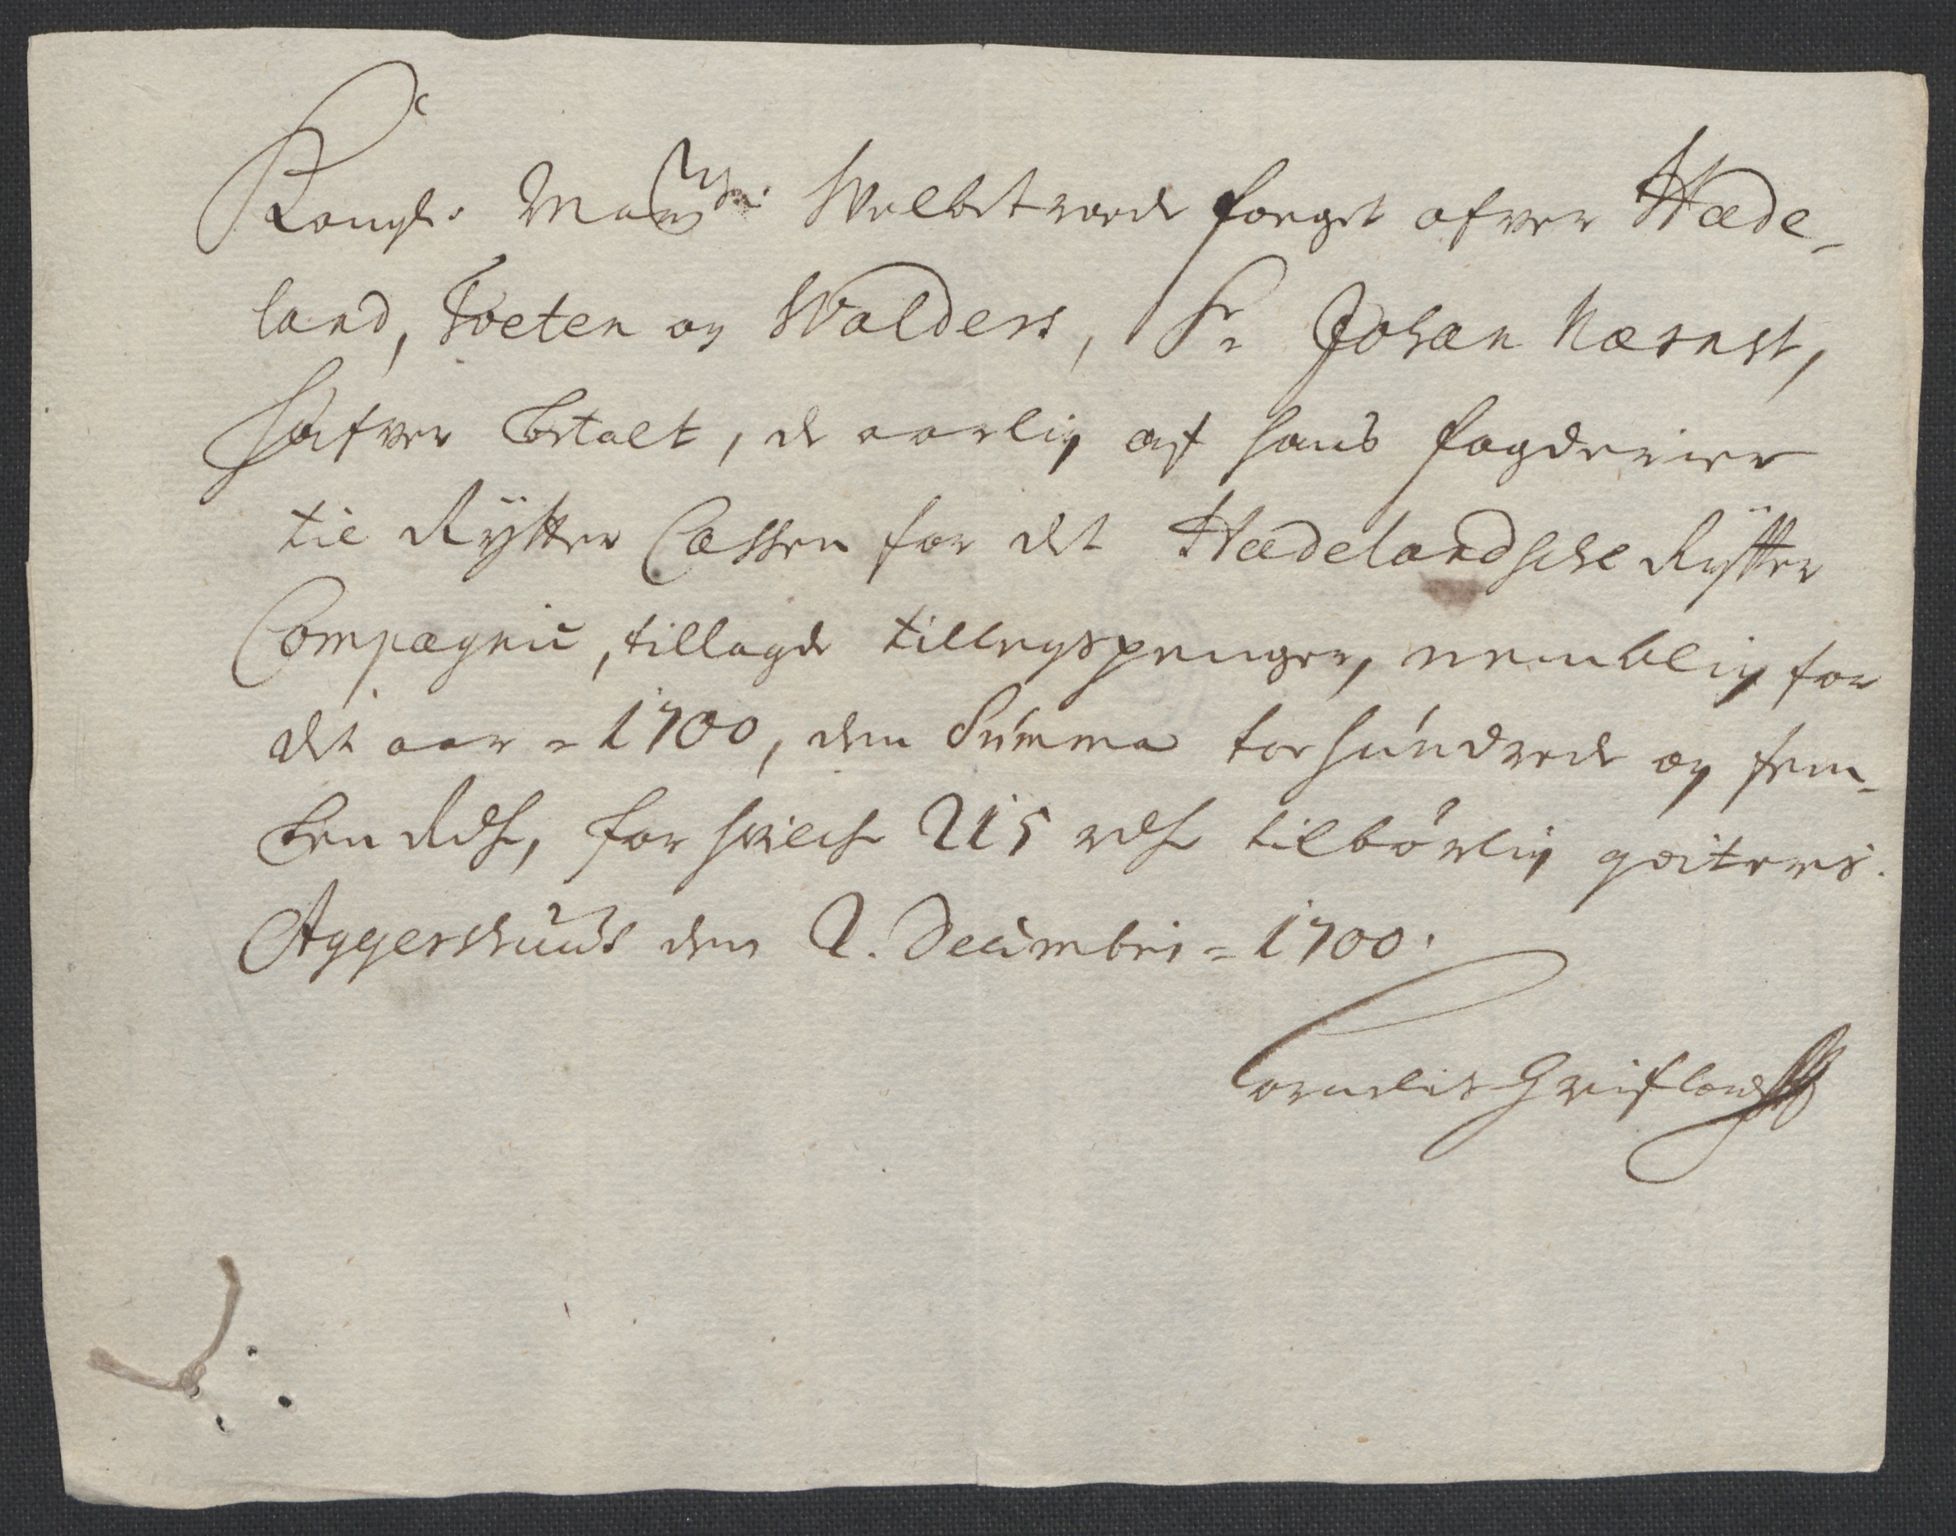 Kongl. Mayts: Welbetroede foeget ofver Hade-
land, Toeten og Walders, Sr. Johan Næsnst,
hafver betalt, de aarlig af hans fogderier
til Rytter Cassen for det Hadelandsche Rytter
Compagnie, tillagde tillegspenger, nemblig for
det aar = 1700, den Summa toehundrede og fem-
ten Rdr, for hvilche 215 rdr tilbørlig qviteres.
Aggershuus den 2. Decembris = 1700.
Cornelis Grifland